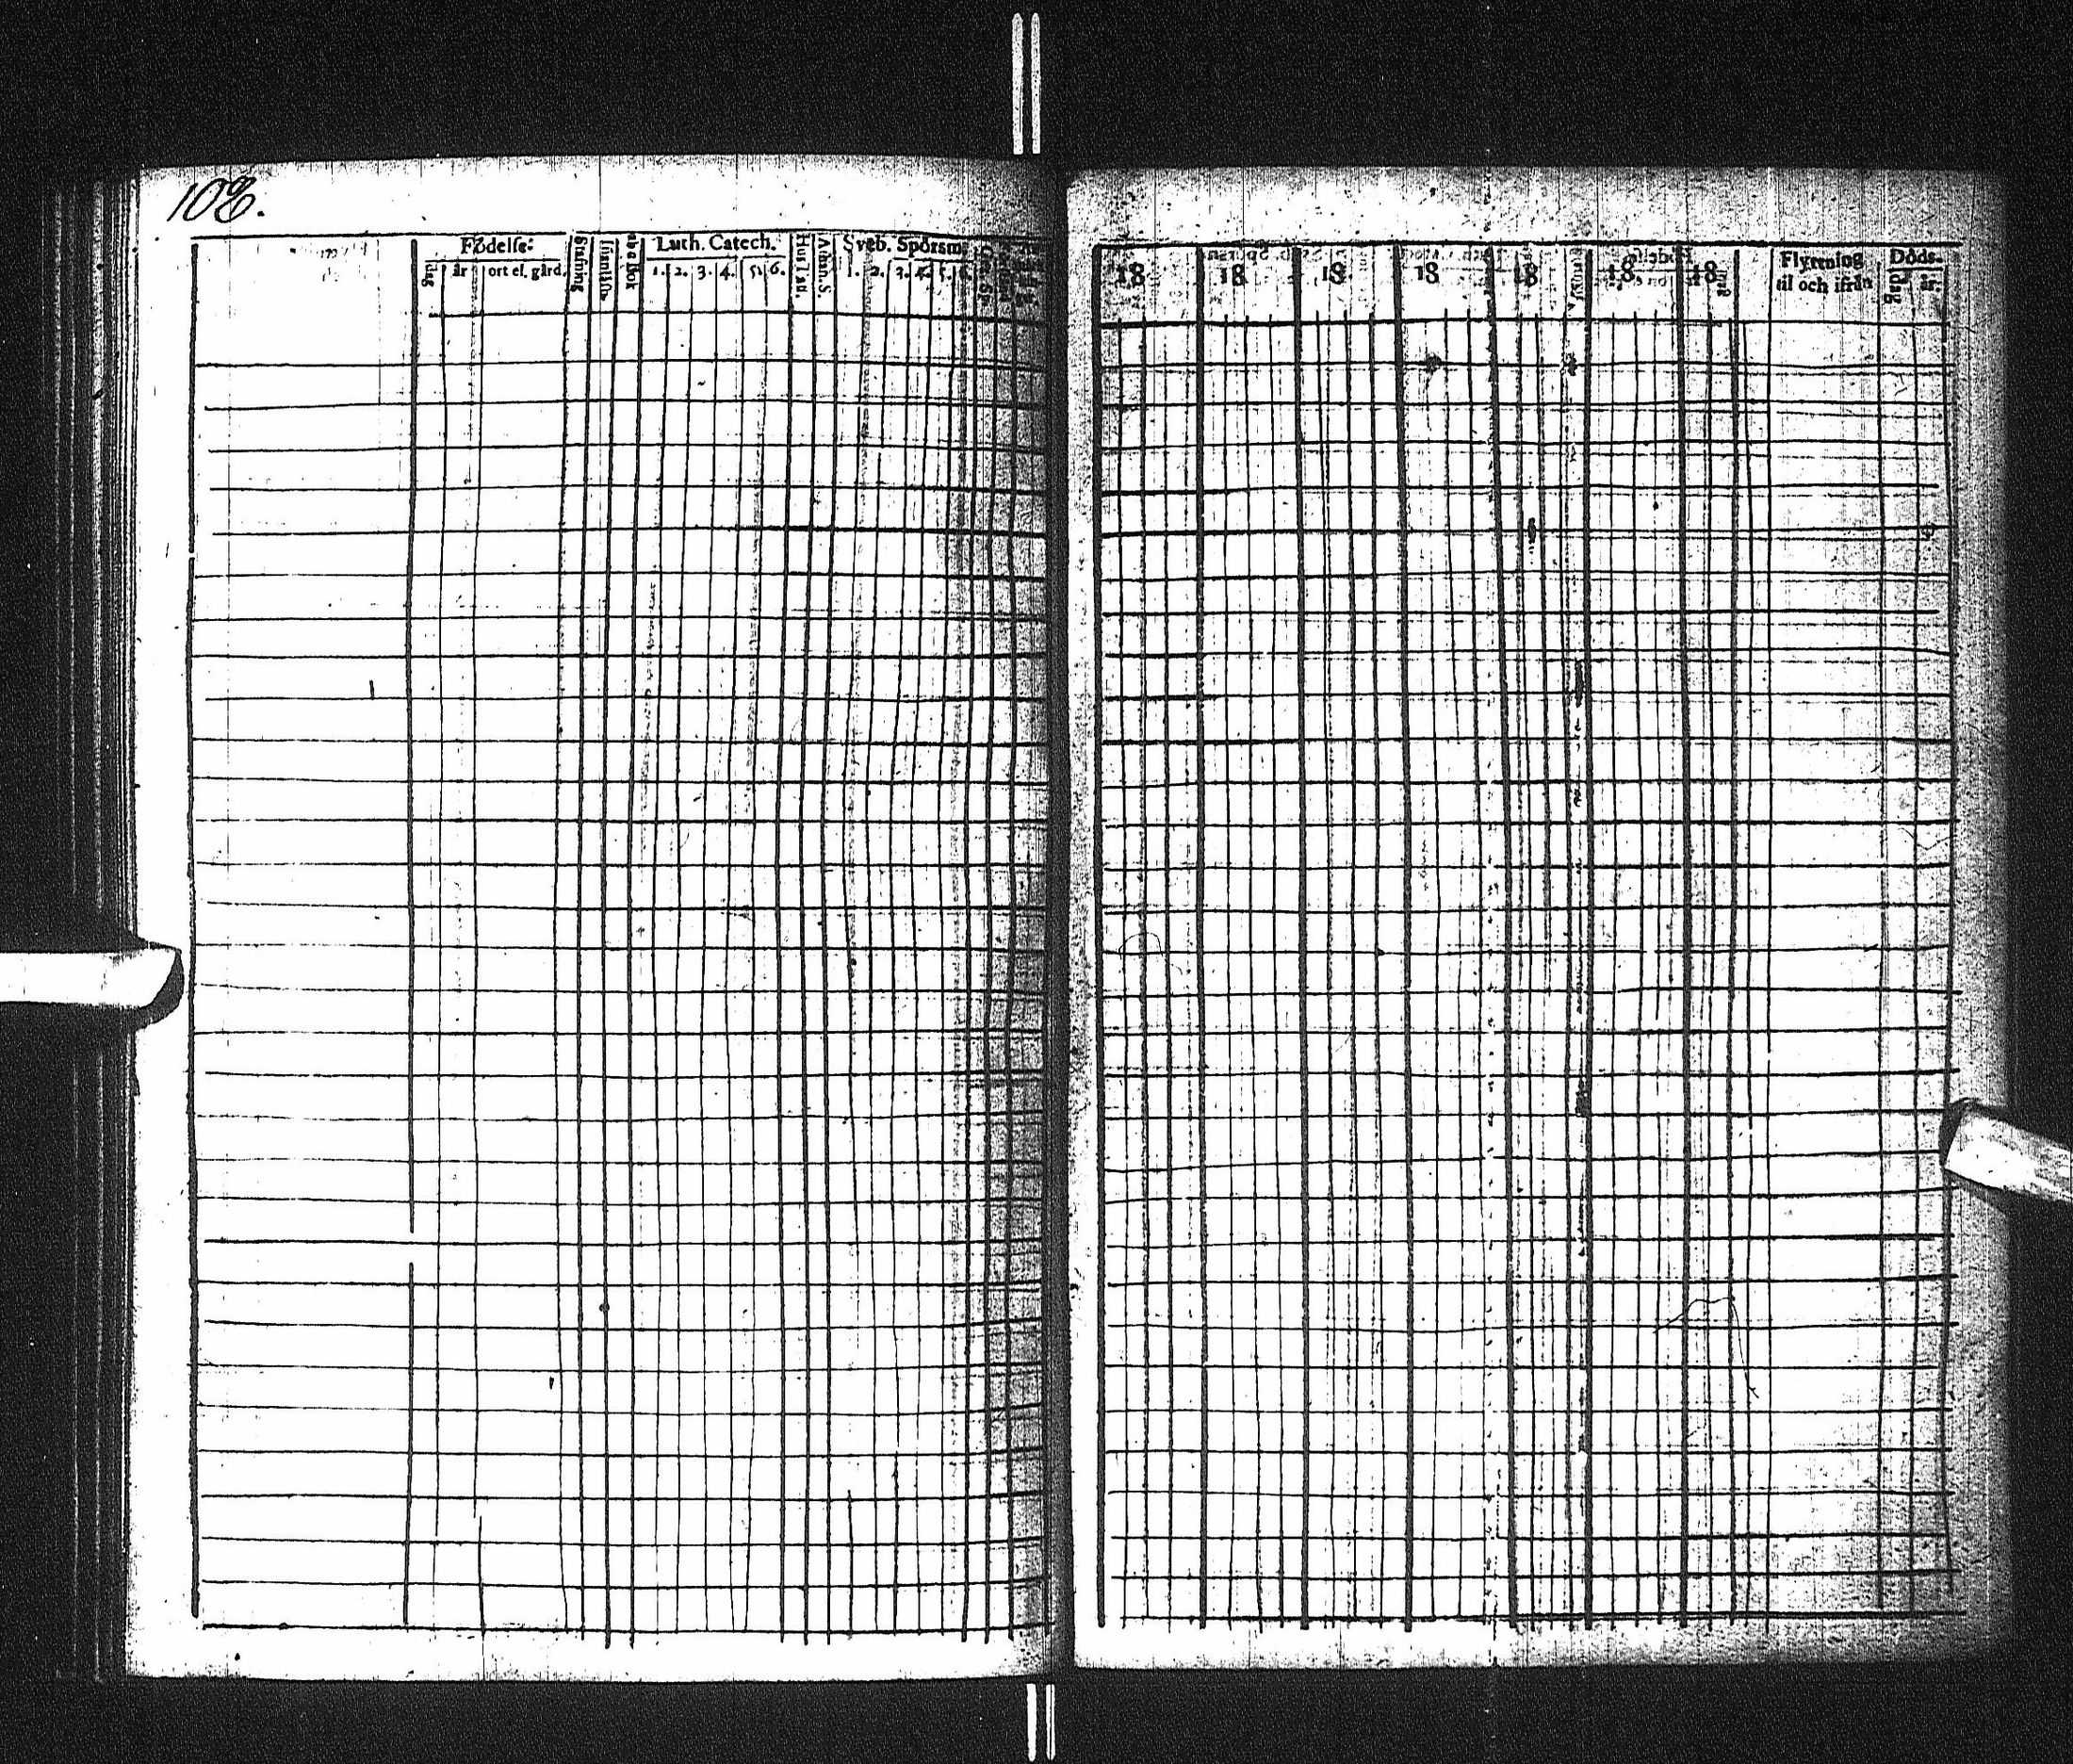 108.
Födelse:
dag år ort el. gård.
Stafning
Luth. Catech.
1. 2. 3. 4. 5. 6.
Hus T.
Athan. S.
Sveb. Spörsm.
1. 2. 3. 4. 5. 6.
18 18 18 18 18 18 18
Flyttning
til och ifrån
Döds-
dag år.